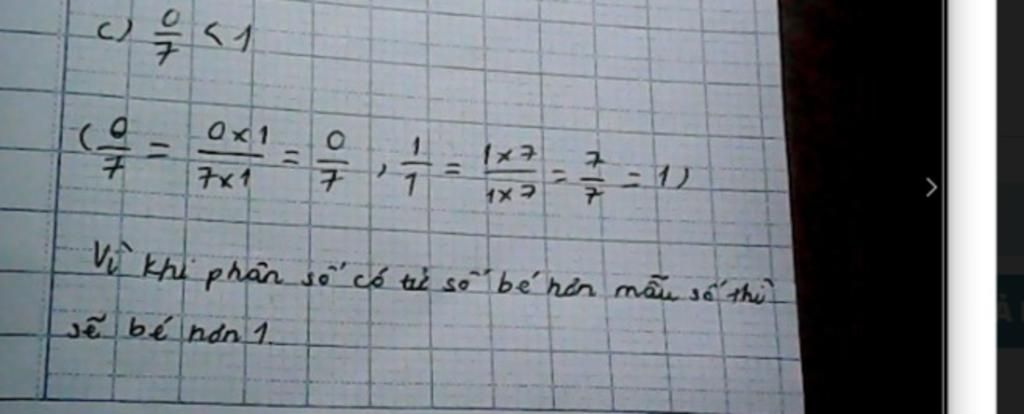 c) 0/7 < 1
(0/7 = 0x1/7x1 = 0/7 , 1/1 = 1x7/1x7 = 7/7 = 1)
Vì khi phân số có tử số bé hơn mẫu số thì
sẽ bé hơn 1.